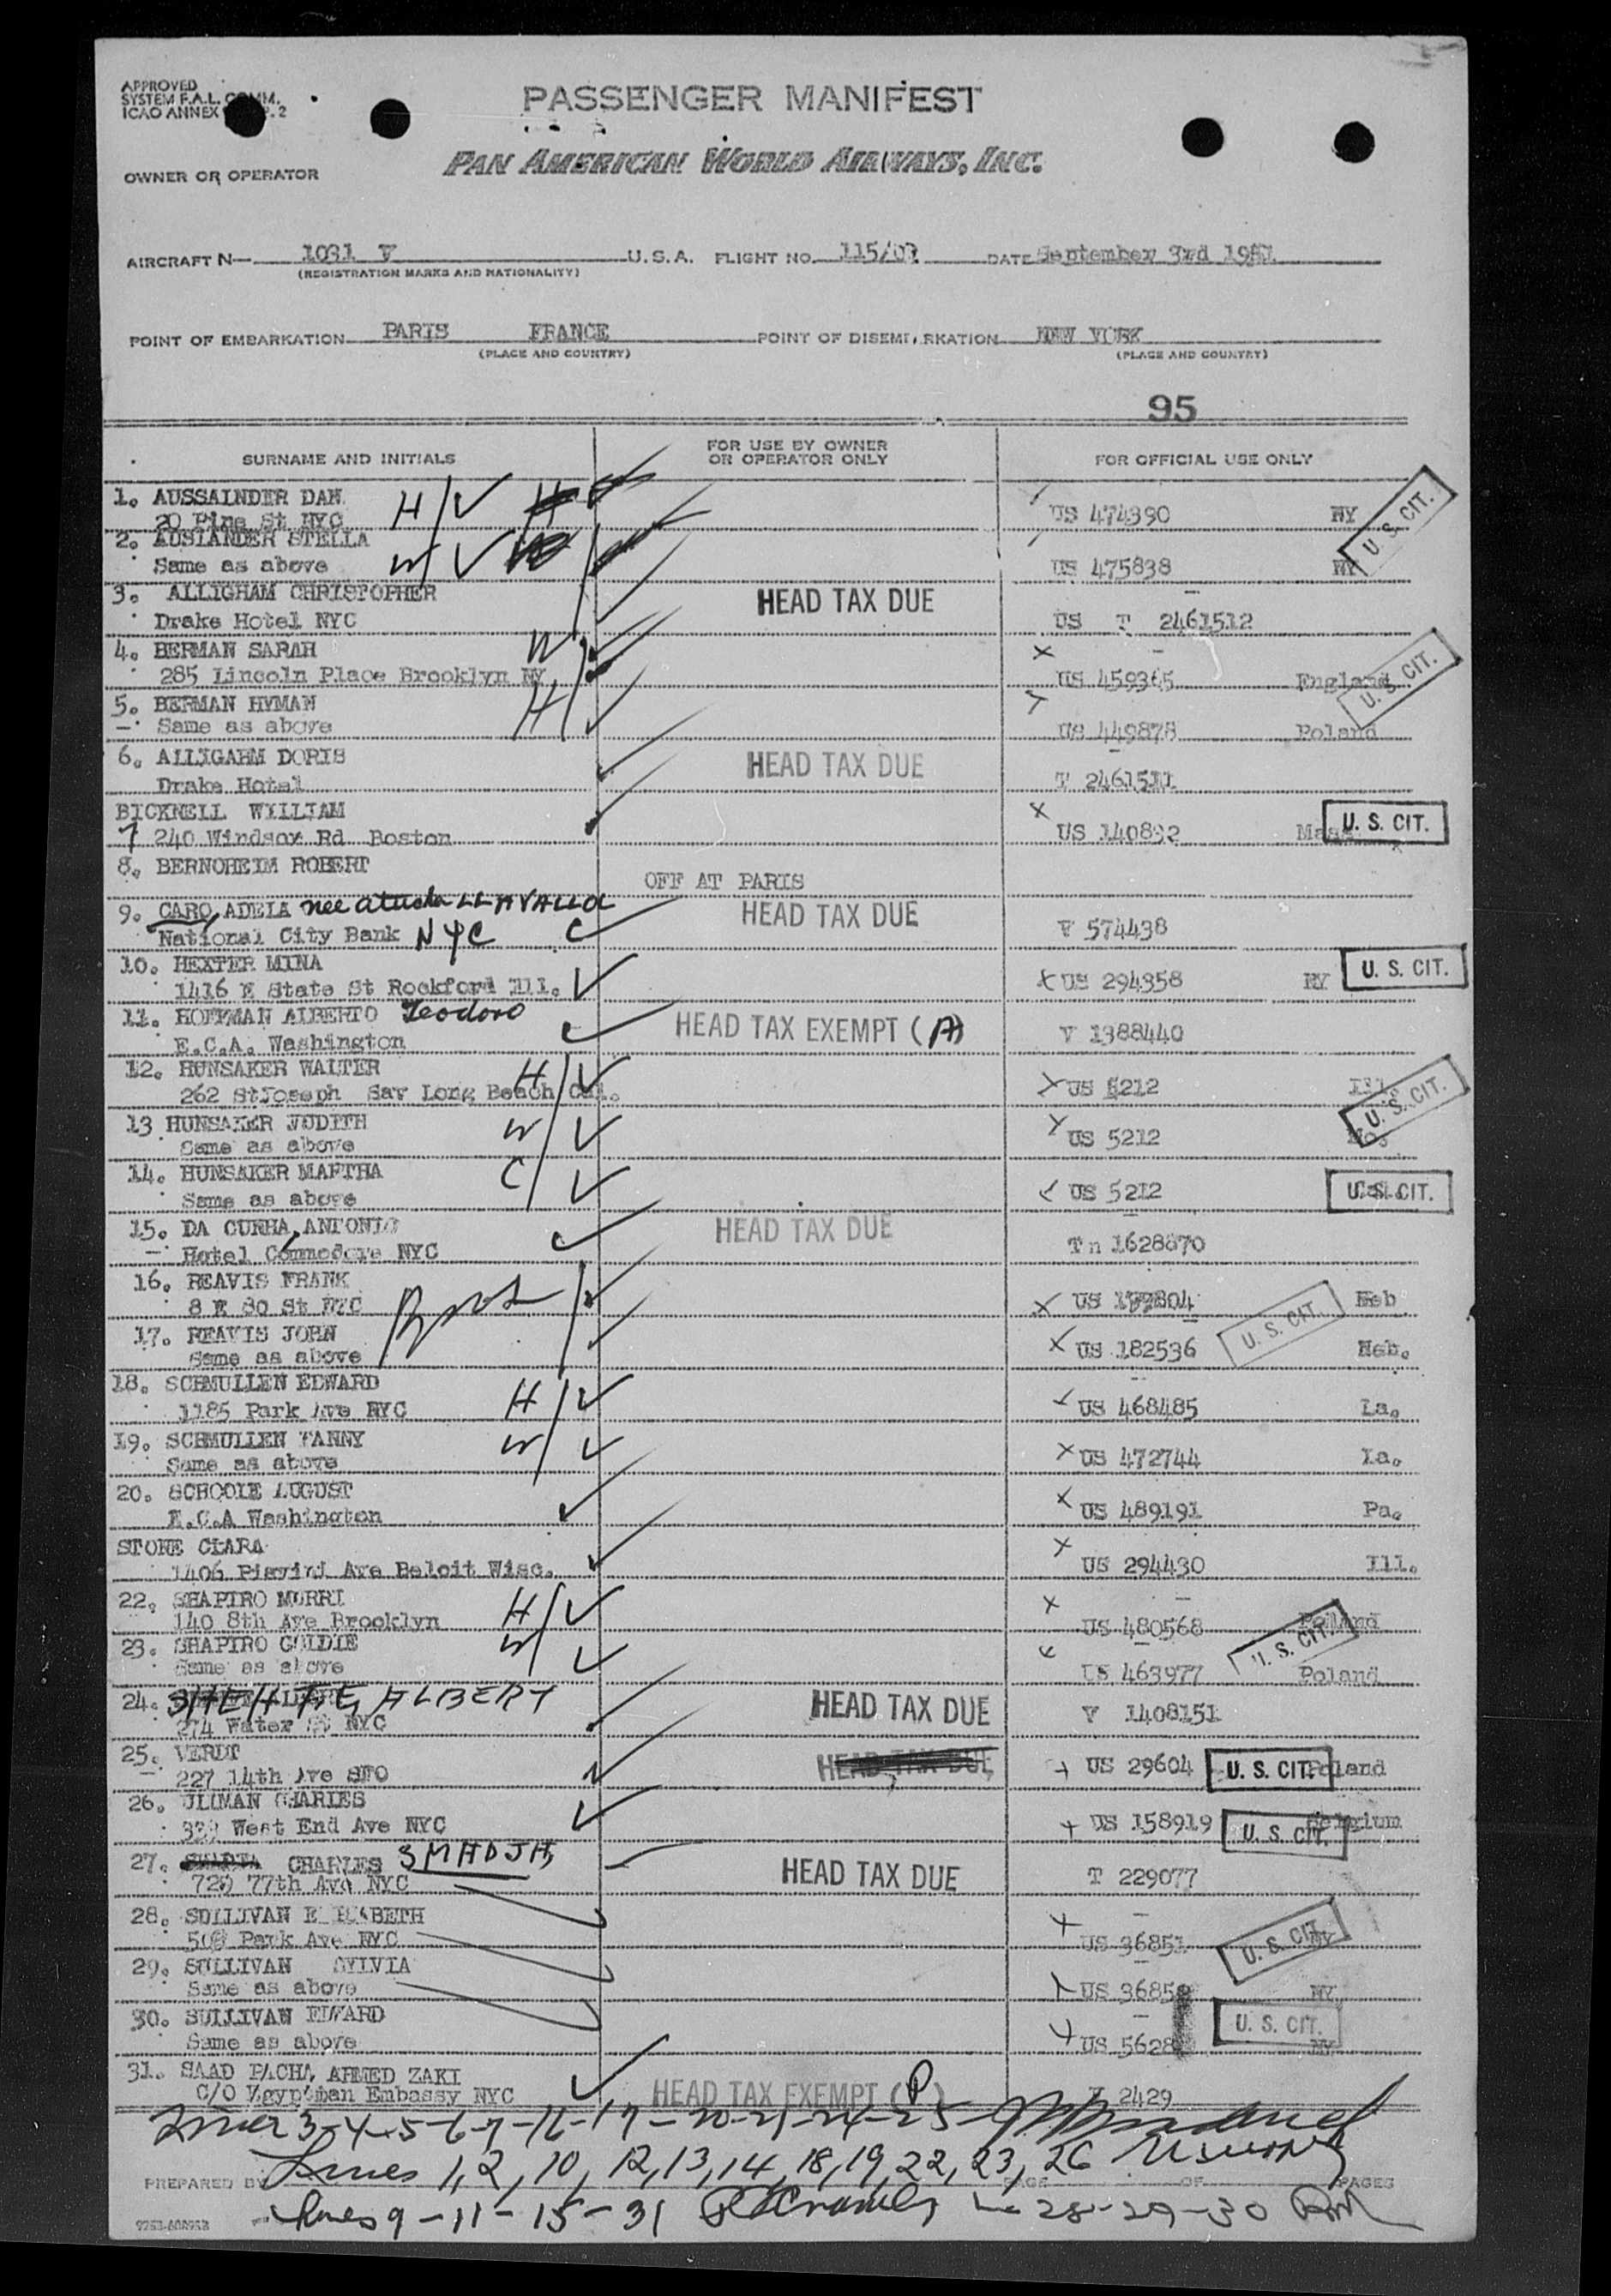 APPROVED
SYSTEM F.A.L. COMM.
ICAO ANNEX 2
PASSENGER MANIFEST
OWNER OR OPERATOR
PAN AMERICAN WORLD AIRWAYS, INC.
AIRCRAFT N— 1031 V U.S.A. FLIGHT NO. 115/03 DATE September 3rd 1951
(REGISTRATION MARKS AND NATIONALITY)
POINT OF EMBARKATION PARIS FRANCE POINT OF DISEMBARKATION NEW YORK
(PLACE AND COUNTRY) (PLACE AND COUNTRY)
95
SURNAME AND INITIALS FOR USE BY OWNER OR OPERATOR ONLY FOR OFFICIAL USE ONLY
1. AUSSAINDER DAN H
20 Pine St NYC US 474390 NY U. S. CIT.
2. AUSLANDER STELLA W
Same as above US 475838 NY
3. ALLIGHAM CHRISTOPHER HEAD TAX DUE
Drake Hotel NYC US T 2461512
4. BERMAN SARAH W
285 Lincoln Place Brooklyn NY US 459365 England U. S. CIT.
5. BERMAN HYMAN H
Same as above US 449878 Poland
6. ALLIGAHM DORIS HEAD TAX DUE
Drake Hotel T 2461511
BICKNELL WILLIAM
7 240 Windsor Rd Boston US 140892 Mass U. S. CIT.
8. BERNOHEIM ROBERT
OFF AT PARIS
9. CARO, ADELA nee atucha LLAVALLOL HEAD TAX DUE
National City Bank NYC V 574438
10. HEXTER MINA
1416 E State St Rockford Ill. US 294358 NY U. S. CIT.
11. HOFFMAN ALBERTO Teodoro HEAD TAX EXEMPT (A)
E.C.A. Washington V 1388440
12. HUNSAKER WALTER H
262 StJoseph Sav Long Beach Cal. US 5212 Ill. U. S. CIT.
13 HUNSAKER JUDITH W
Same as above US 5212 Mo.
14. HUNSAKER MARTHA C
Same as above US 5212 U. S. CIT.
15. DA CUNHA, ANTONIO HEAD TAX DUE
Hotel Commodore NYC Tn 1628870
16. REAVIS FRANK
8 E 80 St NYC US 804 Neb
17. REAVIS JOHN U. S. CIT.
Same as above US 182536 Neb.
18. SCHMULLEN EDWARD H
1185 Park Ave NYC US 468485 La.
19. SCHMULLEN FANNY W
Same as above US 472744 La.
20. SCHOOLE AUGUST
E.C.A Washington US 489191 Pa.
STONE CLARA
1406 Ave Beloit Wisc. US 294430 Ill.
22. SHAPIRO MORRI H
140 8th Ave Brooklyn US 480568 Poland
23. SHAPIRO GOLDIE W
Same as above US 463977 Poland U. S. CIT.
24. ALBERT HEAD TAX DUE
274 Water St NYC V 1408151
25. VERDT HEAD TAX DUE
227 14th Ave STO US 29604 U. S. CIT. Poland
26. ULLMAN CHARLES
West End Ave NYC US 158919 Belgium U. S. CIT.
27. CHARLES SMADJA HEAD TAX DUE
77th Ave NYC T 229077
28. SULLIVAN ELIZABETH
Park Ave NYC US 36851 NY U. S. CIT.
29. SULLIVAN SYLVIA
Same as above US 3685 NY
30. SULLIVAN EDWARD U. S. CIT.
Same as above US 5628 NY
31. SAAD PACHA AHMED ZAKI
C/O Egyptian Embassy NYC HEAD TAX EXEMPT (P) 2429
Lines 3-4-5-6-7-16-17-20-21-24-25
Lines 1,2,10,12,13,14,18,19,22,23,26
PREPARED BY PAGE OF PAGES
Lines 9-11-15-31 28-29-30